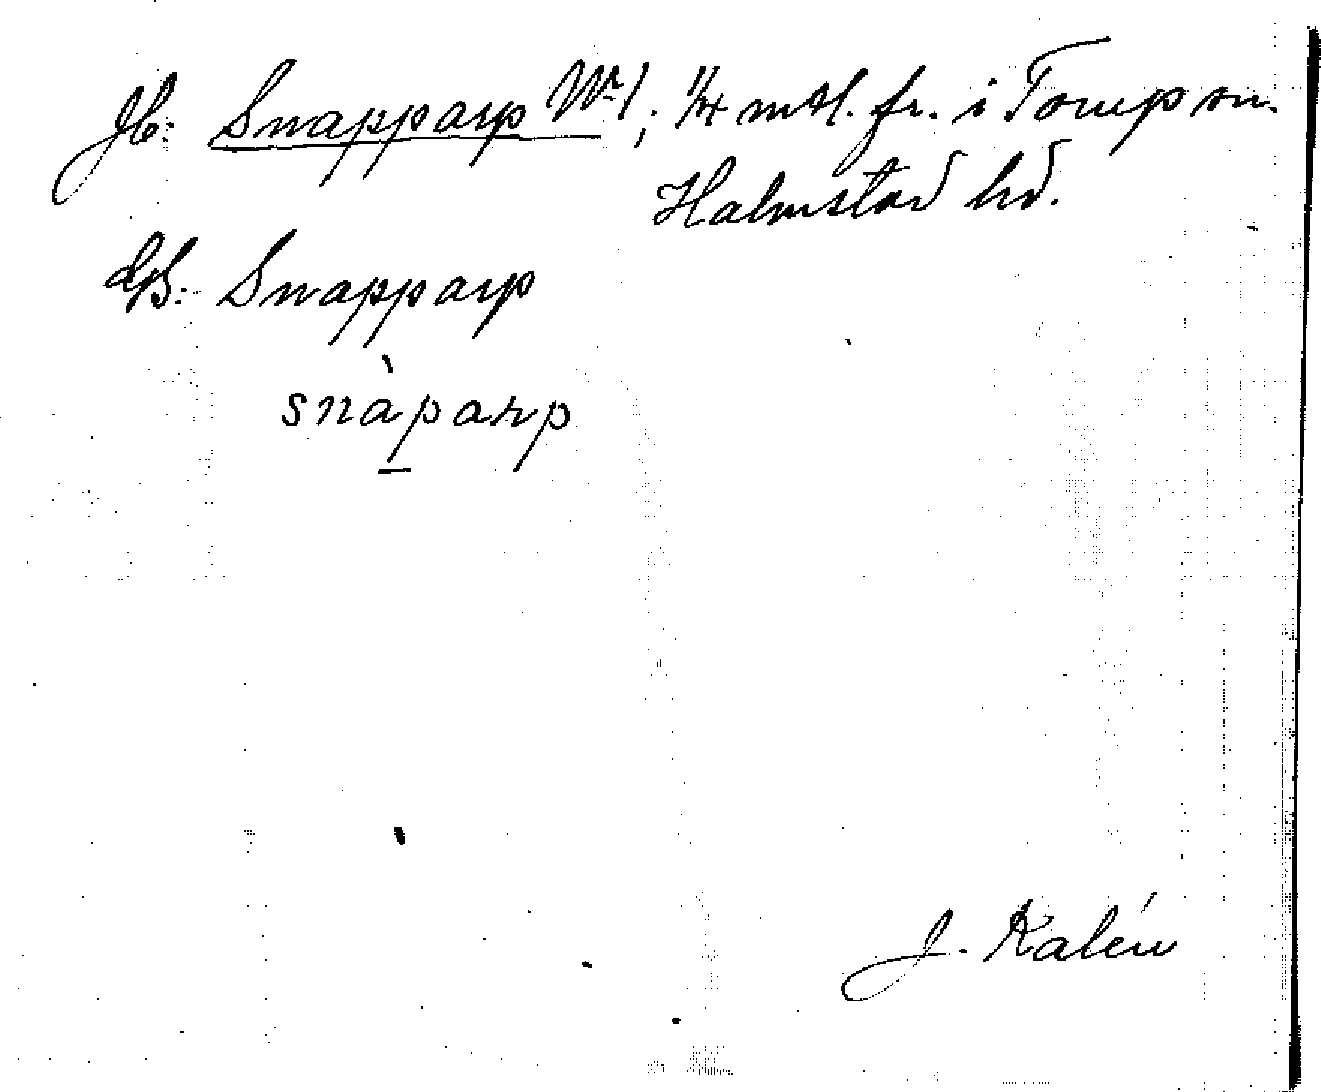 Jb: Snapparp Nr 1; 1/4 mtl. fr. i Torup sn.
Halmstad hd.
GS: Snapparp
snàparp
J. Kalén